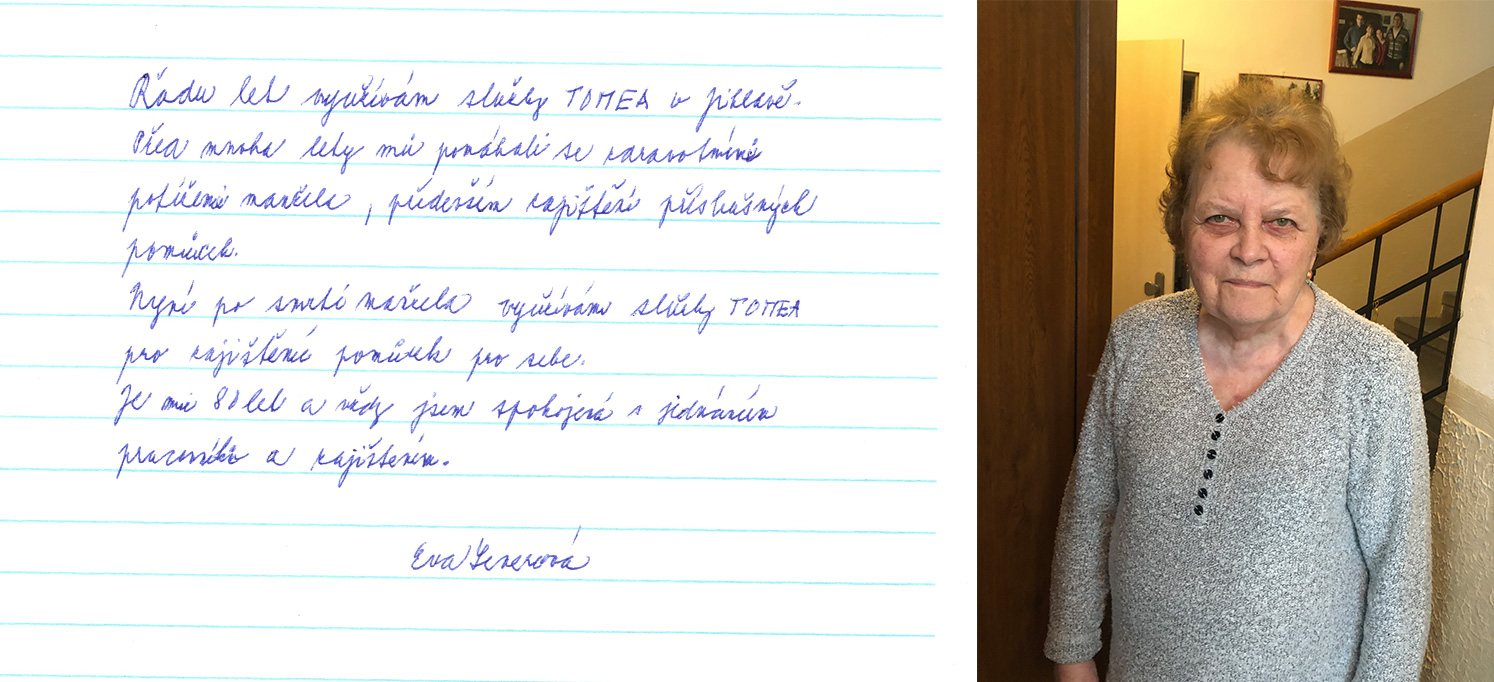 Řadu let využívám služby TOMEA v Jihlavě.
Před mnoha lety mi pomáhali se zdravotními
potížemi manžela, především zajištění příslušných
pomůcek.
Nyní po smrti manžela využívám služby TOMEA
pro zajištění pomůcek pro sebe.
Je mi 80 let a vždy jsem spokojená s jednáním
pracovníků a zajištěním.
Eva